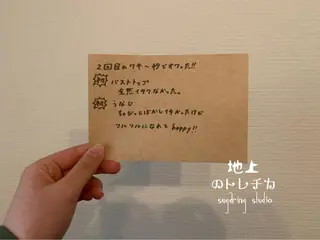 2回目のワキ〜秒でオワった!!
初 バストトップ
全然イタくなかった。
初 うなじ
ちょびっとばかしイタかったけど
ツルツルになれて happy!!
地上
のトレチカ
sugaring studio